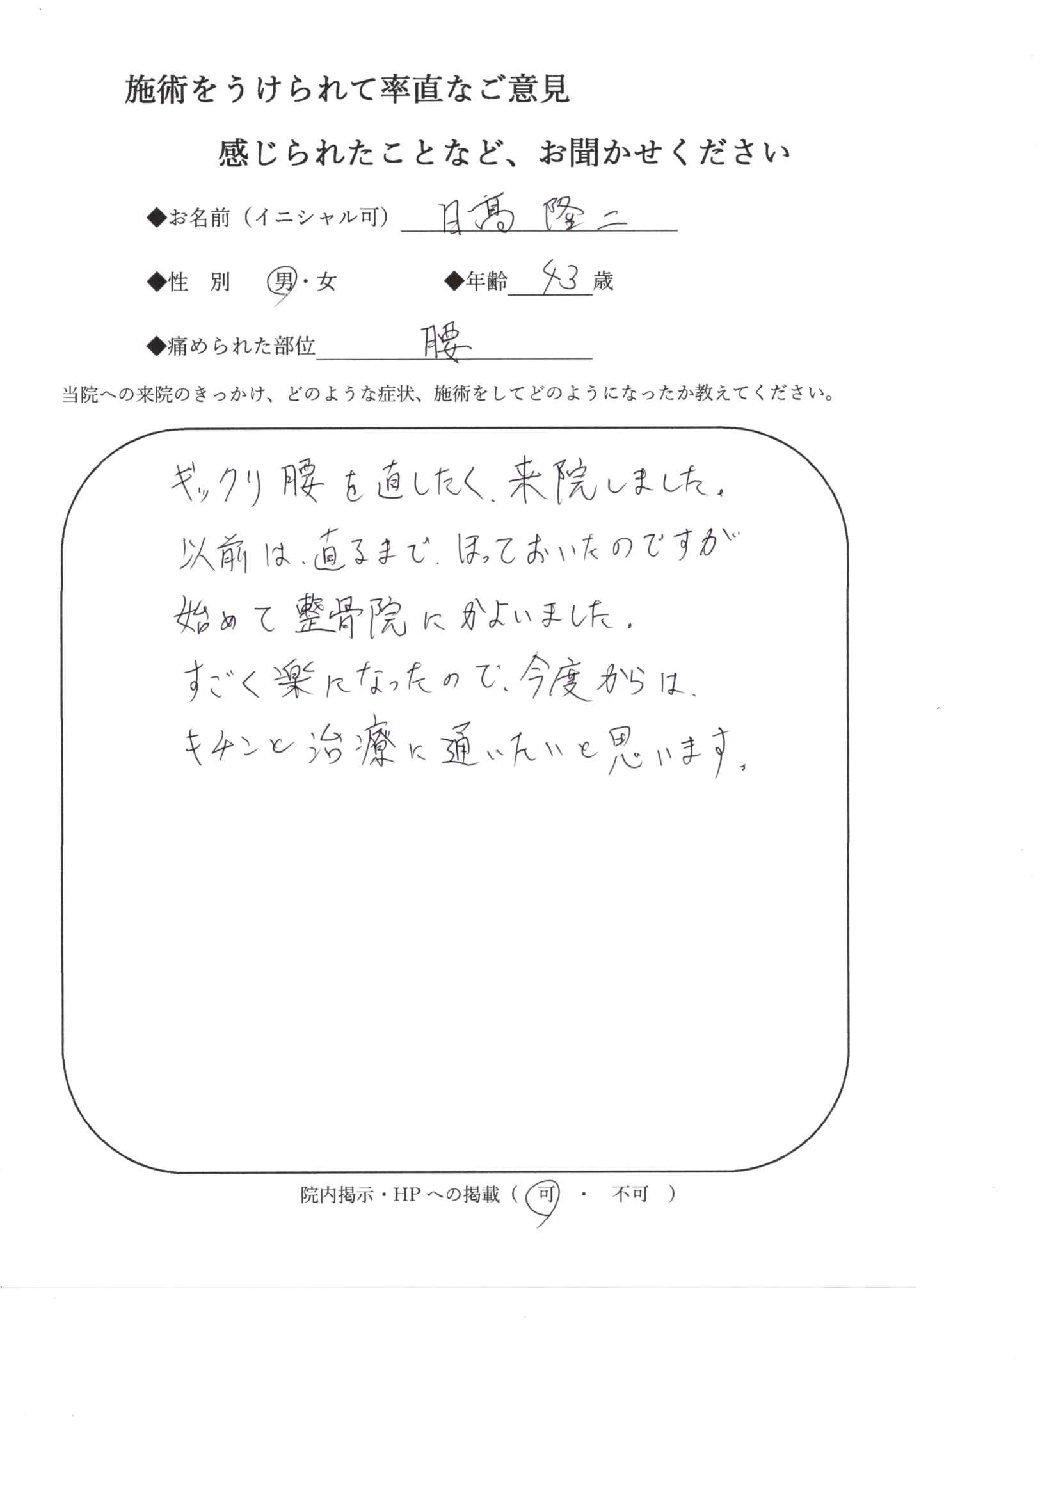 施術をうけられて率直なご意見
感じられたことなど、お聞かせください
◆お名前（イニシャル可） 日髙 隆二
◆性　別　男・女　　◆年齢 43 歳
◆痛められた部位 腰
当院への来院のきっかけ、どのような症状、施術をしてどのようになったか教えてください。
ギックリ腰を直したく、来院しました。
以前は、直るまで、ほっておいたのですが
始めて整骨院にかよいました。
すごく楽になったので、今度からは、
キチンと治療に通いたいと思います。
院内掲示・HPへの掲載（ 可 ・ 不可 ）